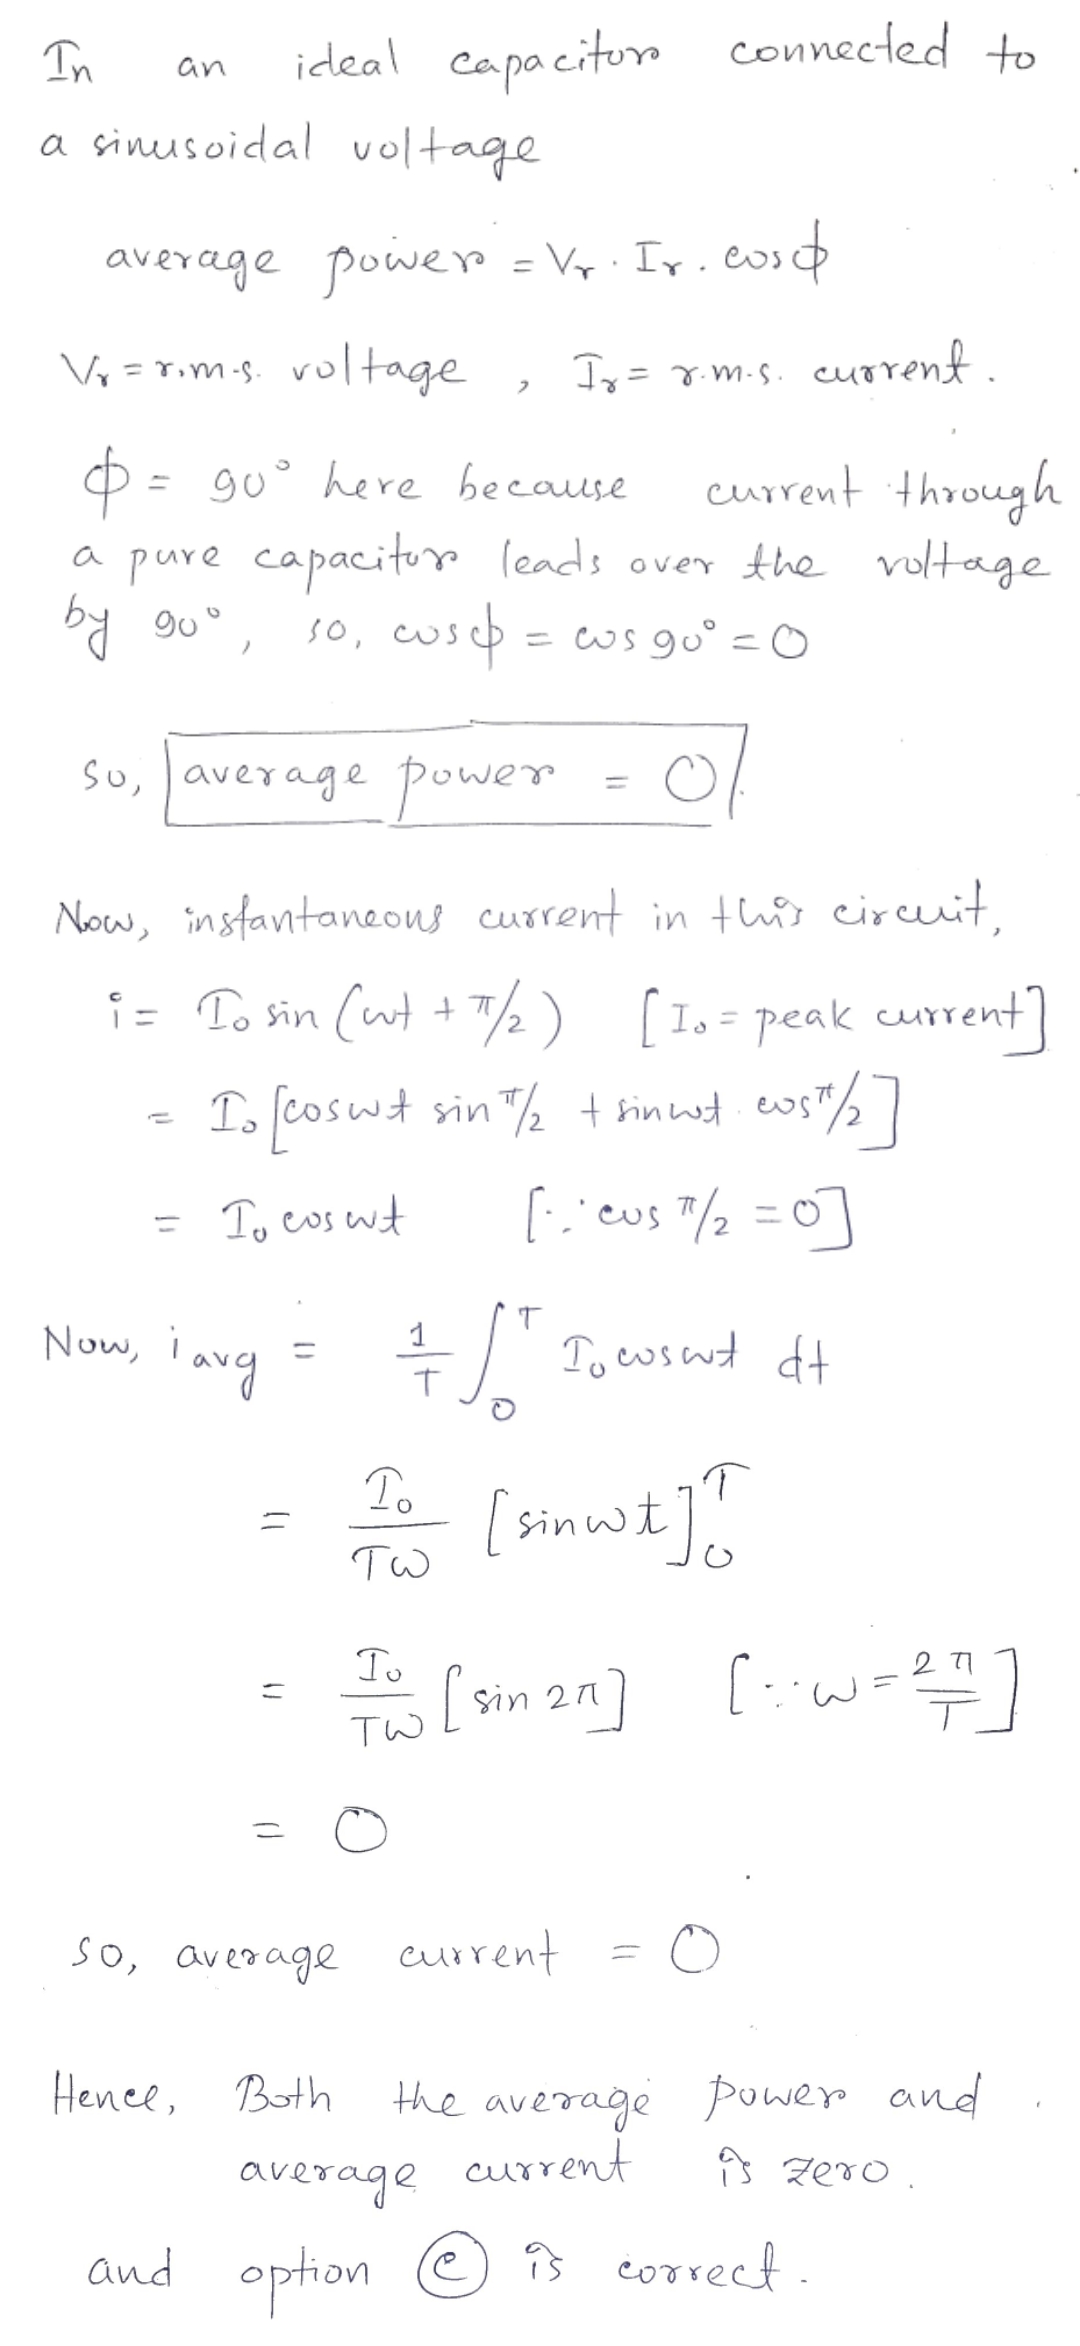 In an ideal capacitor connected to
a sinusoidal voltage
average power = Vr · Ir . cosϕ
Vr = r.m.s. voltage , Ir = r.m.s. current .
ϕ = 90° here because current through
a pure capacitor leads over the voltage
by 90° , so, cosϕ = cos 90° = 0
so, average power = 0
Now, instantaneous current in this circuit,
i = I₀ sin (ωt + π/2) [I₀ = peak current]
= I₀ [cos ωt sin π/2 + sin ωt . cos π/2]
= I₀ cos ωt [∵ cos π/2 = 0]
Now, i avg = 1/T ∫₀ᵀ I₀ cos ωt dt
= I₀/Tω [sin ωt]₀ᵀ
= I₀/Tω [sin 2π] [∵ ω = 2π/T]
= 0
so, average current = 0
Hence, Both the average power and
average current is zero .
and option ⓔ is correct .